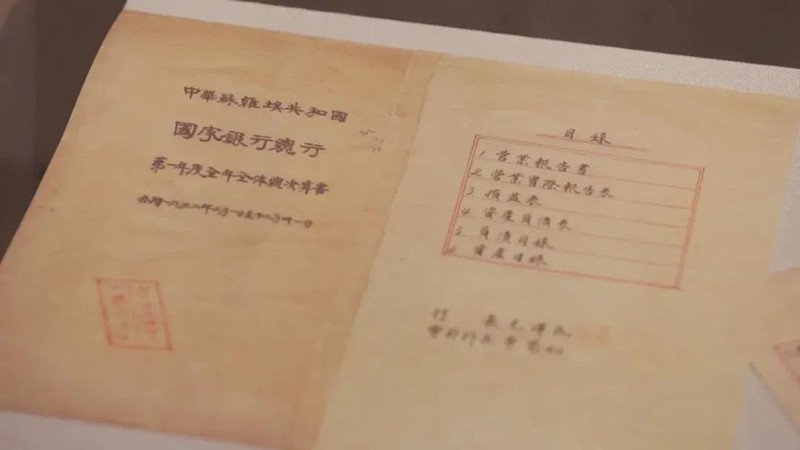 中華蘇維埃共和國
國家銀行總行
第一年度全年全体總决算書
公曆一九三二年二月一日至十二月卅一日
目錄
1. 營業報告書
2. 營業實際報告表
3. 損益表
4. 資產負債表
5. 負債目錄
6. 資產目錄
行 長毛澤民
會計科長曹菊如